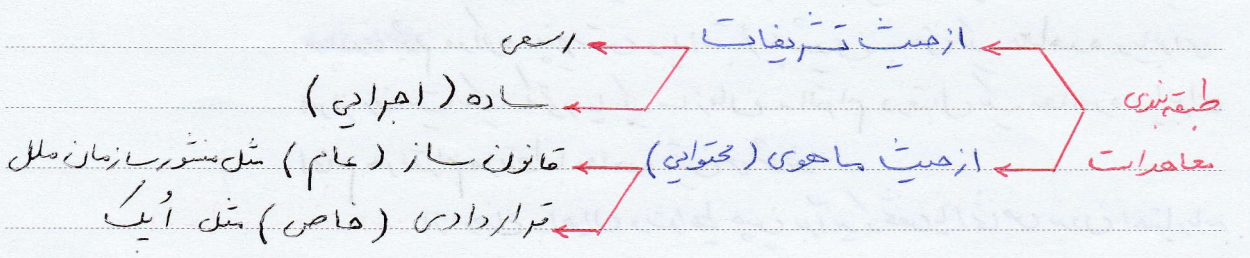 طبقه‌بندی معاهدات
از حیث تشریفات
رسمی
ساده (اجرایی)
از حیث ماهوی (محتوایی)
قانون ساز (عام) مثل منشور سازمان ملل
قراردادی (خاص) مثل اُپک